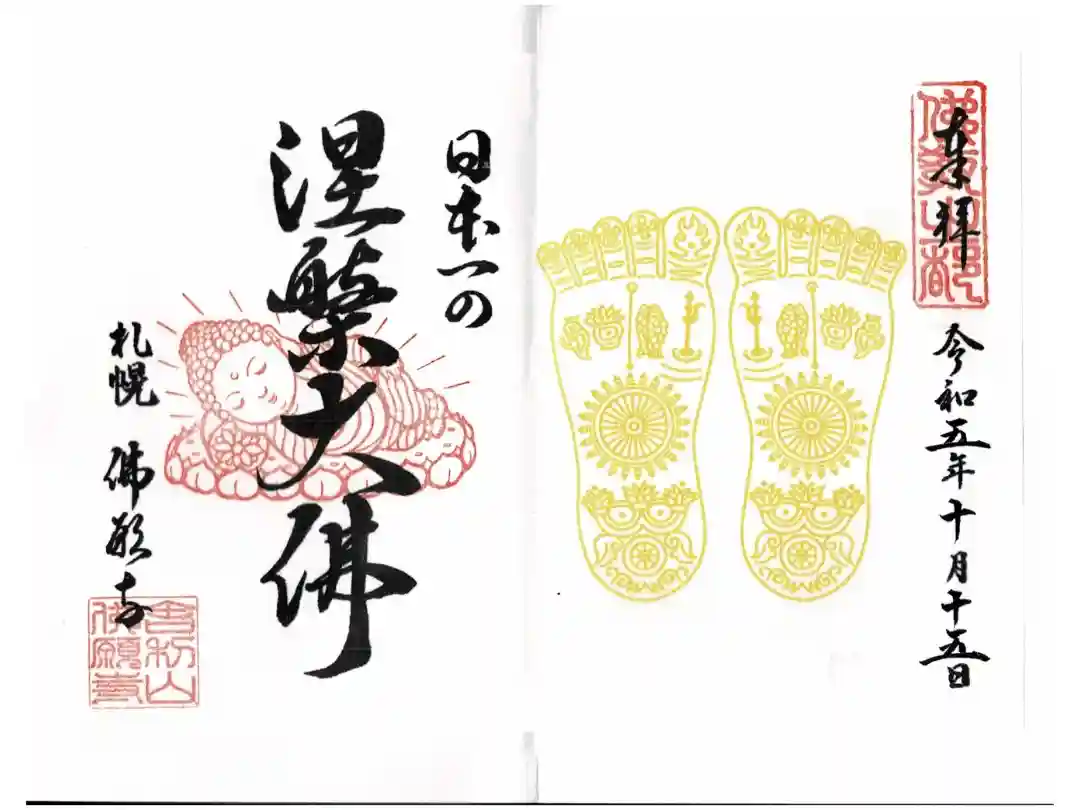 奉拝
佛教之都
令和五年十月十五日
日本一の
涅槃大佛
札幌 佛願寺
舎利山
佛願寺